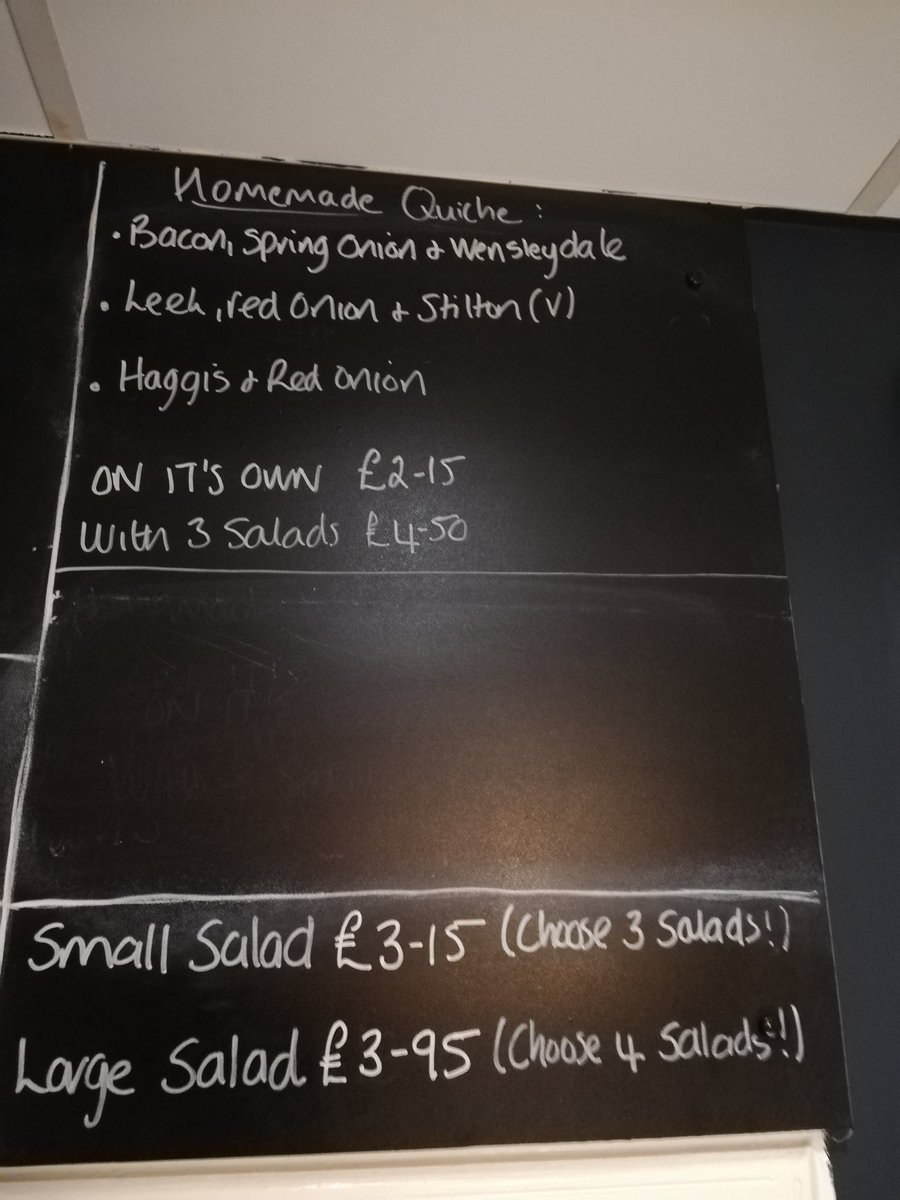 Homemade Quiche:
• Bacon, Spring Onion & Wensleydale
• Leek, red Onion & Stilton (V)
• Haggis & Red Onion
ON IT'S OWN £2-15
With 3 Salads £4-50
Small Salad £3-15 (Choose 3 Salads!)
Large Salad £3-95 (Choose 4 Salads!)